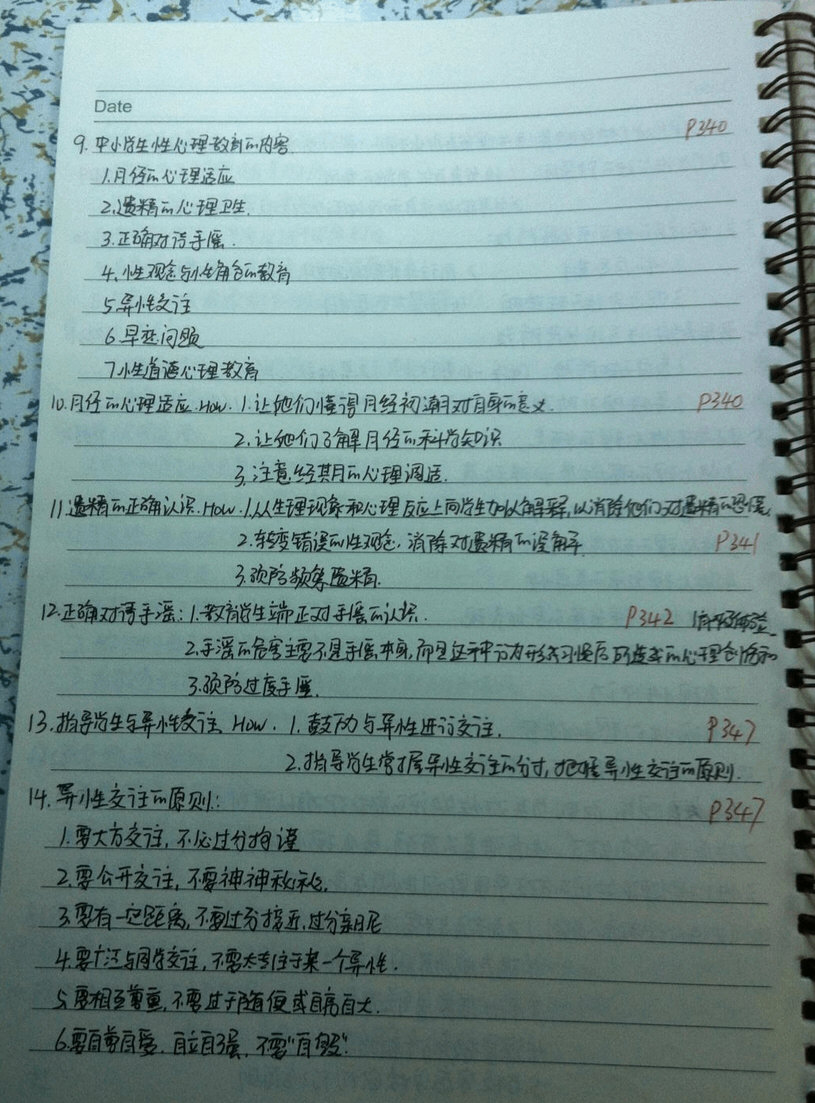 Date
9.中小学生性心理教育的内容. P340
1.月经的心理适应
2.遗精的心理卫生.
3.正确对待手淫.
4.性观念与性角色的教育
5.异性交往
6.早恋问题
7.性道德心理教育
10.月经的心理适应.How. 1.让他们懂得月经初潮对自身的意义. P340
2.让他们了解月经的科学知识
3.注意经期的心理调适.
11.遗精的正确认识.How. 1.从生理现象和心理反应上向学生加以解释,以消除他们对遗精的恐慌.
2.转变错误的性观念,消除对遗精的误解. P341
3.预防频繁遗精.
12.正确对待手淫:1.教育学生端正对手淫的认识. P342 消极体验.
2.手淫的危害主要不是手淫本身,而是这种行为形成习惯后所造成的心理创伤和
3.预防过度手淫.
13.指导学生与异性交往.How. 1.鼓励与异性进行交往. P347
2.指导学生掌握异性交往的分寸,把握异性交往的原则.
14.异性交往的原则: P347
1.要大方交往,不必过分拘谨
2.要公开交往,不要神神秘秘.
3.要有一定距离,不要过分接近,过分亲昵
4.要广泛与同学交往,不要太专注于某一个异性.
5.要相互尊重,不要过于随便或自高自大.
6.要自尊自爱.自立自强,不要"自毁".